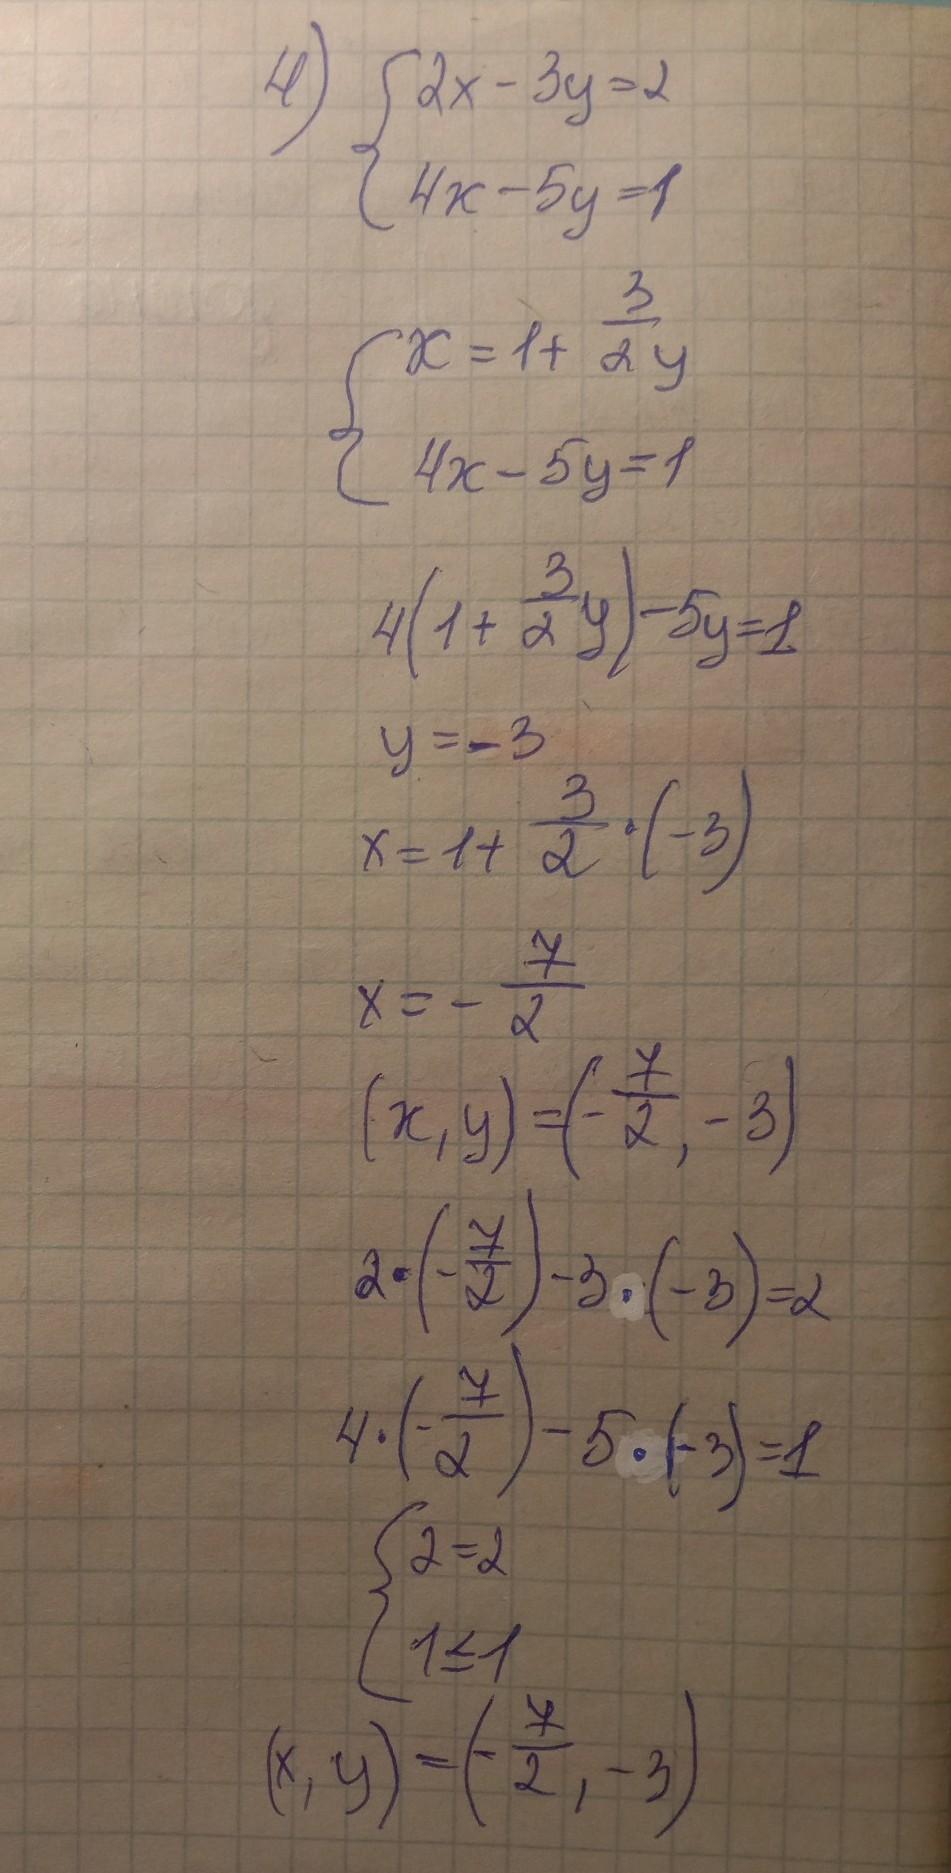 4) { 2x - 3y = 2
4x - 5y = 1
{ x = 1 + 3/2 y
4x - 5y = 1
4(1 + 3/2 y) - 5y = 1
y = -3
x = 1 + 3/2 · (-3)
x = - 7/2
(x, y) = (- 7/2, -3)
2 · (- 7/2) - 3 · (-3) = 2
4 · (- 7/2) - 5 · (-3) = 1
{ 2 = 2
1 ≤ 1
(x, y) = (- 7/2, -3)